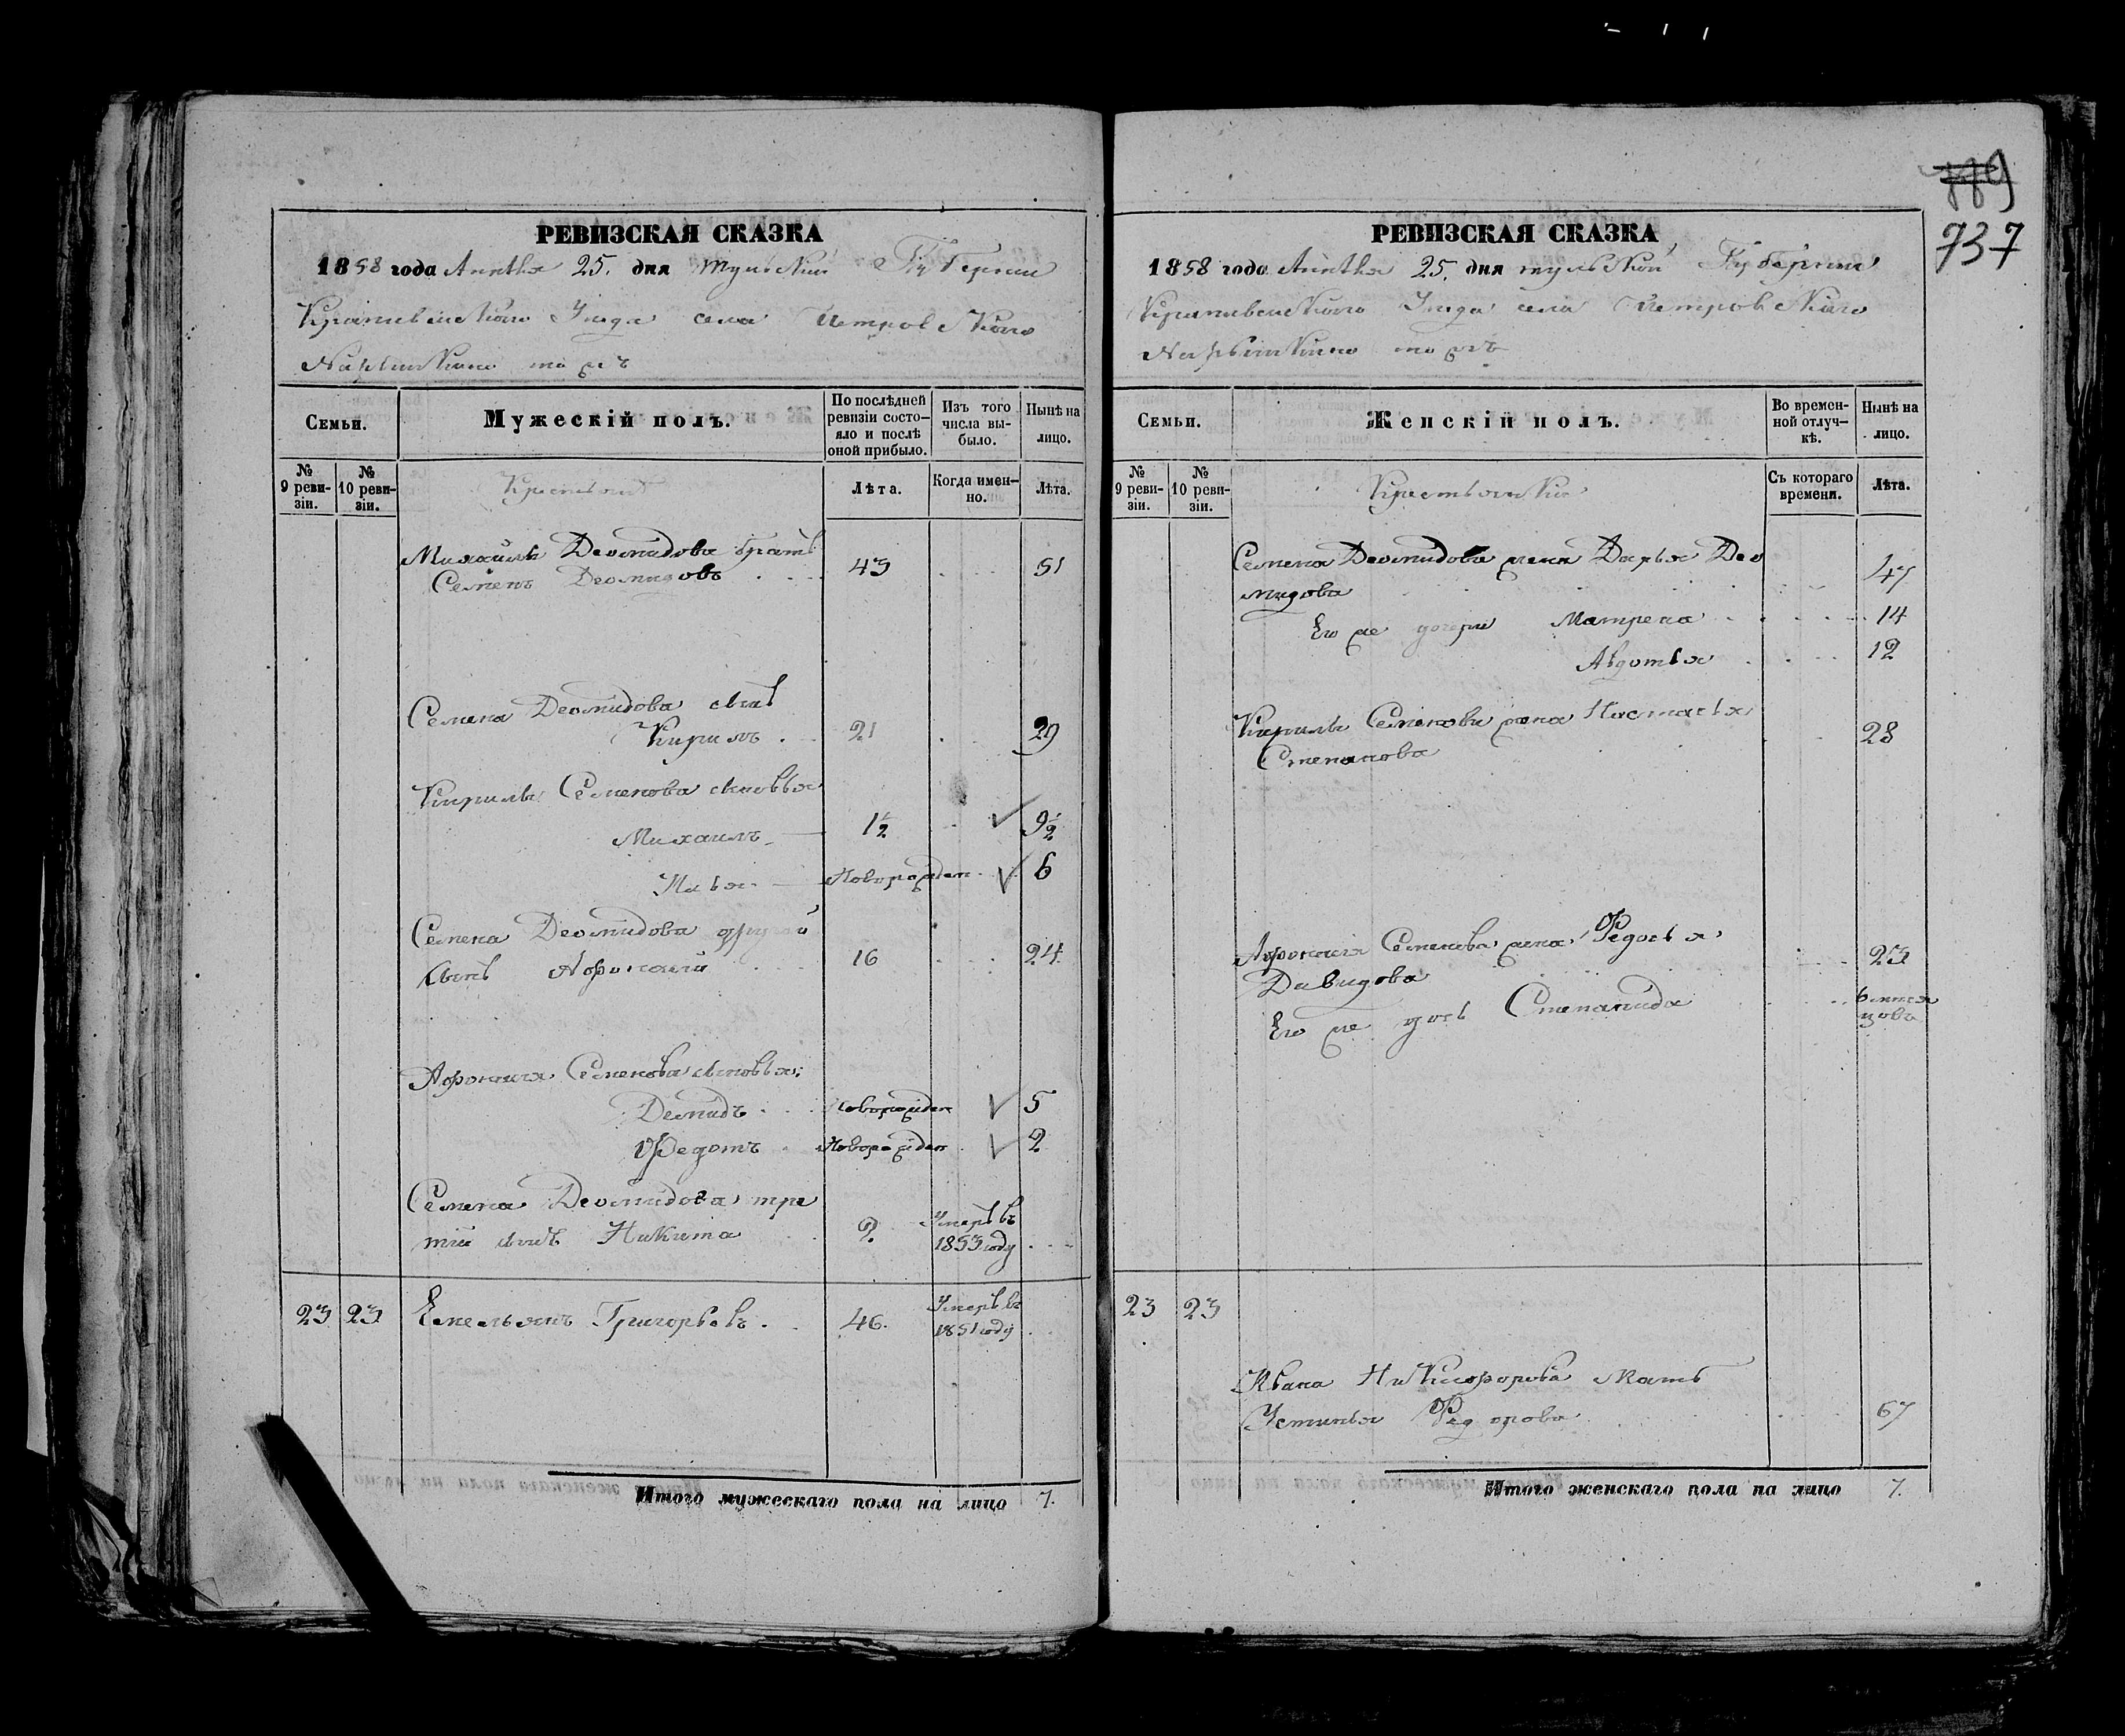 737
РЕВИЗСКАЯ СКАЗКА
1858 года Апреля 25. дня Тульской Губернии
Крапивенского Уезда села Петровского
тожъ
Семьи.
Мужескій полъ.
По послѣдней ревизіи состояло и послѣ оной прибыло.
Изъ того числа выбыло.
Нынѣ на лицо.
№ 9 ревизіи.
№ 10 ревизіи.
Крестьяне
Лѣта.
Когда именно.
Лѣта.
Михаилы Деомидова братъ
Семенъ Деомидовъ 43 51
Семена Деомидова сынъ
Кирилъ 21 29
Кирилы Семенова сыновья
Михаилъ 1½ 9½
Илья Новорожден 6
Семена Деомидова другой
сынъ Афонасий 16 24
Афонасия Семенова сыновья:
Демидъ Новорожден 5
Федотъ Новорожден 2
Семена Деомидова тре
тий сынъ Никита 2 Умеръ въ 1853 году
23 23 Емельянъ Григорьевъ 46 Умеръ въ 1851 году
Итого мужескаго пола на лицо 7.
РЕВИЗСКАЯ СКАЗКА
1858 года Апреля 25. дня Тульской Губернии
Крапивенского Уезда села Петровского
тожъ
Семьи.
Женскій полъ.
Во временной отлучкѣ.
Нынѣ на лицо.
№ 9 ревизіи.
№ 10 ревизіи.
Крестьянки
Съ котораго времени.
Лѣта.
Семена Деомидова жена Дарья Део
мидова 47
Его же дочери Матрена 14
Авдотья 12
Кирилы Семенова жена Настасья
Степанова 28
Афонасия Семенова жена Федосья
Давидова 23
Его же дочь Степанида 6 месяцовъ
23 23
Ивана Никифорова мать
Устинья Федорова 67
Итого женскаго пола на лицо 7.